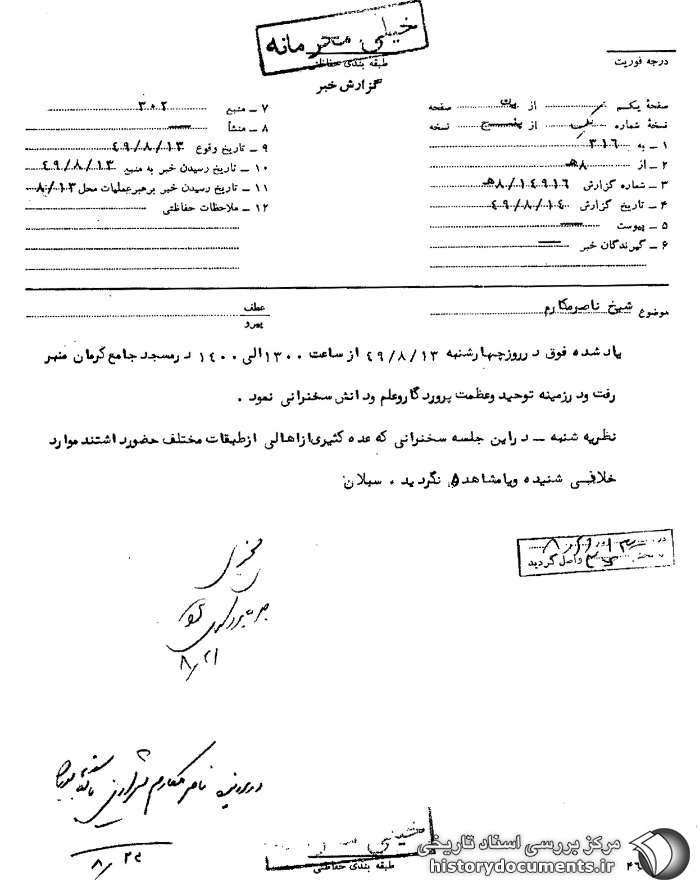 خیلی محرمانه
طبقه بندی حفاظتی
گزارش خبر
درجه فوریت
صفحهٔ یکم از یک صفحه
نسخهٔ شماره یک از پنج نسخه
۱ ـ به ۳۱۶
۲ ـ از ۸هـ
۳ ـ شماره گزارش ۸/۱۴۹۱۶هـ
۴ ـ تاریخ گزارش ۴۹/۸/۱۴
۵ ـ پیوست
۶ ـ گیرندگان خبر
۷ ـ منبع ۳۰۲
۸ ـ منشأ
۹ ـ تاریخ وقوع ۴۹/۸/۱۳
۱۰ ـ تاریخ رسیدن خبر به منبع ۴۹/۸/۱۳
۱۱ ـ تاریخ رسیدن خبر برهبرعملیات محل ۸/۱۳
۱۲ ـ ملاحظات حفاظتی
موضوع شیخ ناصرمکارم
عطف
پیرو
یاد شده فوق در روزچهارشنبه ۴۹/۸/۱۳ از ساعت ۱۳۰۰ الی ۱۴۰۰ درمسجد جامع کرمان منبر
رفت ودرزمینه توحید وعظمت پروردگاروعلم ودانش سخنرانی نمود .
نظریه شنبه ـ دراین جلسه سخنرانی که عده کثیری ازاهالی ازطبقات مختلف حضورداشتند موارد
خلافی شنیده ویامشاهده نگردید . سبلان
واصل گردید
۸/۲۱
در پرونده ناصر مکارم شیرازی بایگانی شود
۸/۲۴
خیلی
طبقه بندی حفاظتی
مرکز بررسی اسناد تاریخی
historydocuments.ir